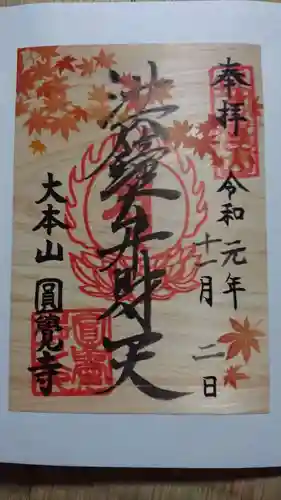 奉拝
令和元年
十一月二日
洪鐘大弁財天
大本山圓覺寺